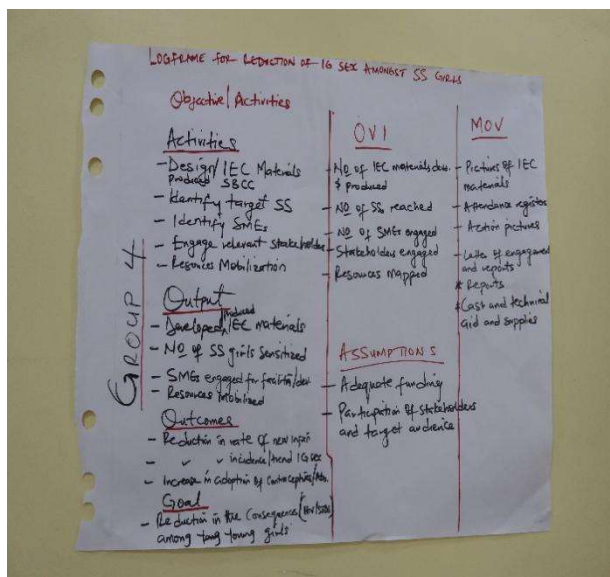 LOGFRAME FOR REDUCTION OF IG SEX AMONGST SS GIRLS
Objective/Activities
GROUP 4
Activities
- Design/IEC Materials
produced SBCC
- Identify target SS
- Identify SMEs
- Engage relevant stakeholders
- Resources Mobilization
Output
- Developed/produced IEC materials
- No of SS girls Sensitized
- SMEs engaged for
- Resources Mobilized
Outcomes
- Reduction in rate of new
- " " incidence/trend IG sex
- Increase in adoption of Contraceptives/
Goal
- Reduction in the Consequences (HIV/
among young girls
OVI
- No of IEC materials dev.
& produced
- No of SS reached
- No of SMEs engaged
- Stakeholders engaged
- Resources mapped
ASSUMPTIONS
- Adequate funding
- Participation of stakeholders
and target audience
MOV
- Pictures of IEC
materials
- Attendance register
- Action pictures
- Letter of engagement
and reports
* Reports
* Cash and technical
aid and supplies